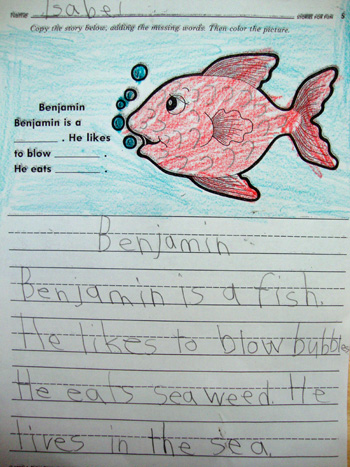 Isabel
Copy the story below, adding the missing words. Then color the picture.
Benjamin
Benjamin is a
________. He likes
to blow ________.
He eats ________.
Benjamin
Benjamin is a fish.
He likes to blow bubbles
He eats seaweed. He
lives in the sea.